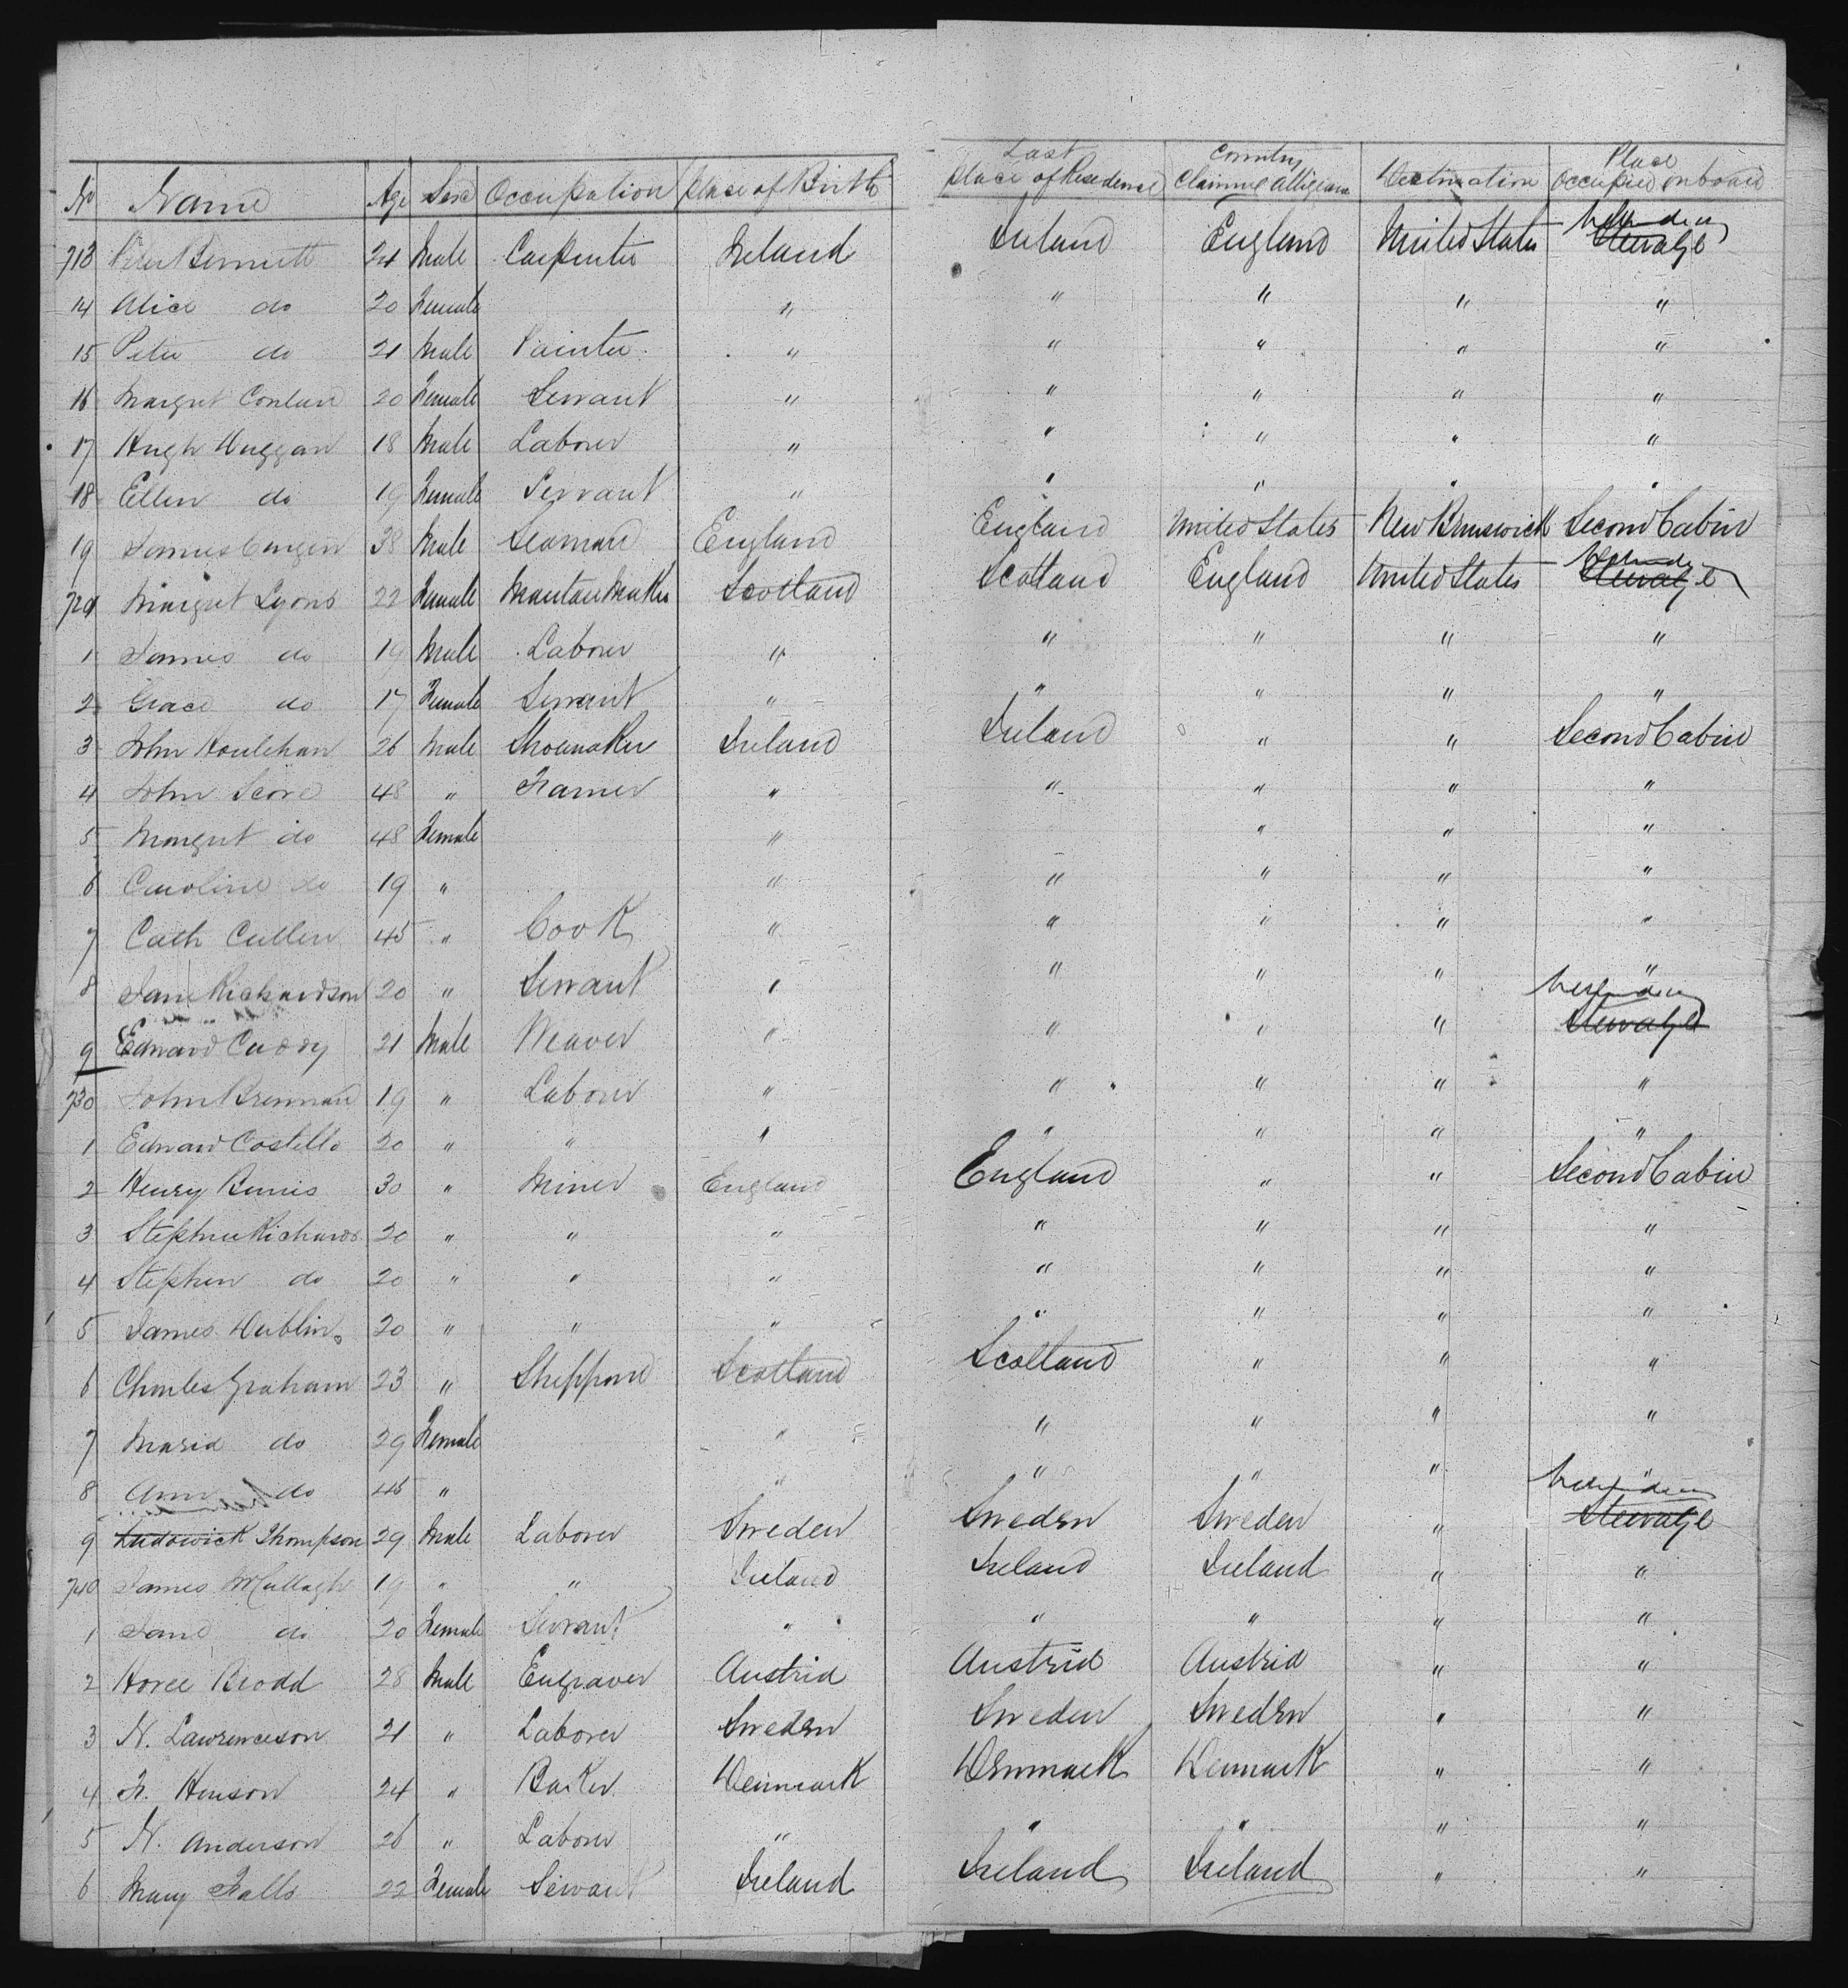 No Name Age Sex Occupation Place of Birth Last Place of Residence Country Claiming Alligiance Destination Place Occupied onboard
713 Peter Bennett 24 Male Carpenter Ireland Ireland England United States Steerage
14 Alice do 20 Female " " " " "
15 Peter do 21 Male Painter " " " " "
16 Margret Conlan 20 Female Servant " " " " "
17 Hugh Duggan 18 Male Laborer " " " " "
18 Ellen do 19 Female Servant " " " " "
19 James 38 Male Seaman England England United States New Brunswick Second Cabin
720 Margret Lyons 22 Female Mantau Maker Scotland Scotland England United States Steerage
1 James do 19 Male Laborer " " " " "
2 Grace do 17 Female Servant " " " " "
3 John Houlehan 26 Male Shoemaker Ireland Ireland " " Second Cabin
4 John Scord 48 " Framer " " " " "
5 Margret do 48 Female " " " "
6 Caroline do 19 " " " " " "
7 Cath Cullen 45 " Cook " " " " "
8 Jane Richardson 20 " Servant " " " " "
9 Edward Cuddy 21 Male Weaver " " " " Steerage
730 John Brennan 19 " Laborer " " " " "
1 Edward Costello 20 " " " " " " "
2 Henry Bunis 30 " Miner England England " " Second Cabin
3 Stephen Richards 20 " " " " " " "
4 Stephen do 20 " " " " " " "
5 James Dublin 20 " " " " " " "
6 Charles Graham 23 " Sheppard Scotland Scotland " " "
7 Maria do 29 Female " " " " "
8 Ann do 45 " " " " " "
9 Ludowick Thompson 29 Male Laborer Sweden Sweden Sweden " Steerage
740 James McCullagh 19 " " Ireland Ireland Ireland " "
1 Jane do 20 Female Servant " " " " "
2 Horce Brodd 28 Male Engraver Austria Austria Austria " "
3 N. Lawrenceson 21 " Laborer Sweden Sweden Sweden " "
4 Fr. Henson 24 " Baker Denmark Denmark Denmark " "
5 N. Anderson 26 " Laborer " " " " "
6 Mary Falls 22 Female Servant Ireland Ireland Ireland " "